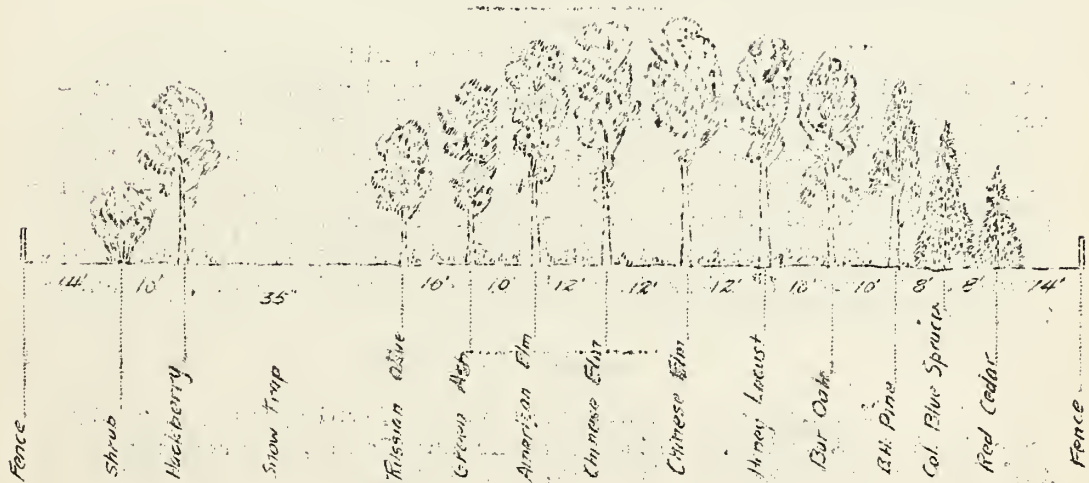 14' 10' 35" 10' 10' 12' 12' 12' 10' 10' 8' 8' 14'
Fence
Shrub
Hackberry
Snow Trap
Russian Olive
Green Ash
American Elm
Chinese Elm
Chinese Elm
Honey Locust
Bur Oak
B.H. Pine
Col. Blue Spruce
Red Cedar
Fence